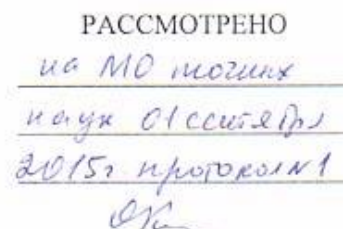 РАССМОТРЕНО
на МО точных
наук 01 сентября
2015г протокол №1